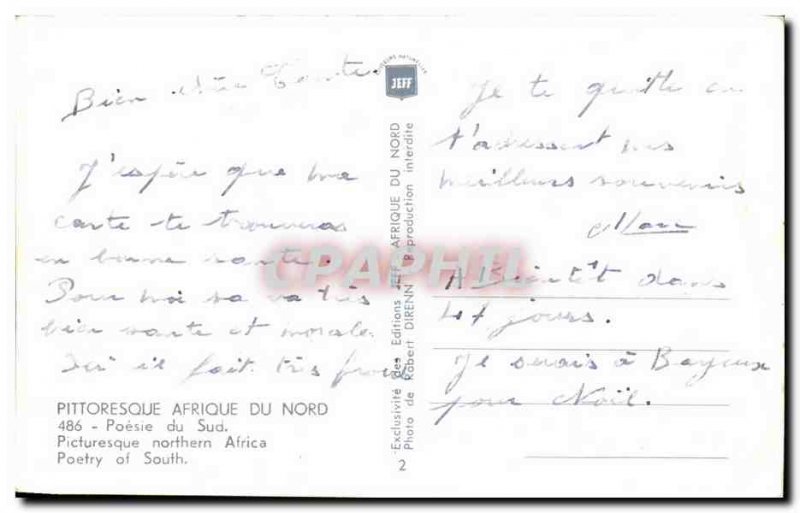 Bien chère Tante.
J'espère que ma
carte te trouveras
en bonne santé.
Pour moi sa va très
bien sante et morale.
Ici il fait très froid
PITTORESQUE AFRIQUE DU NORD
486 - Poésie du Sud.
Picturesque northern Africa
Poetry of South.
COULEURS NATURELLES
JEFF
Exclusivité des Editions JEFF AFRIQUE DU NORD
Photo de Robert DIRENN Reproduction interdite
2
CPAPHIL
Je te quitte en
t'adressant mes
meilleurs souvenirs
Marc
A Bientôt dans
47 jours.
Je serais à Bayeux
pour Noël.